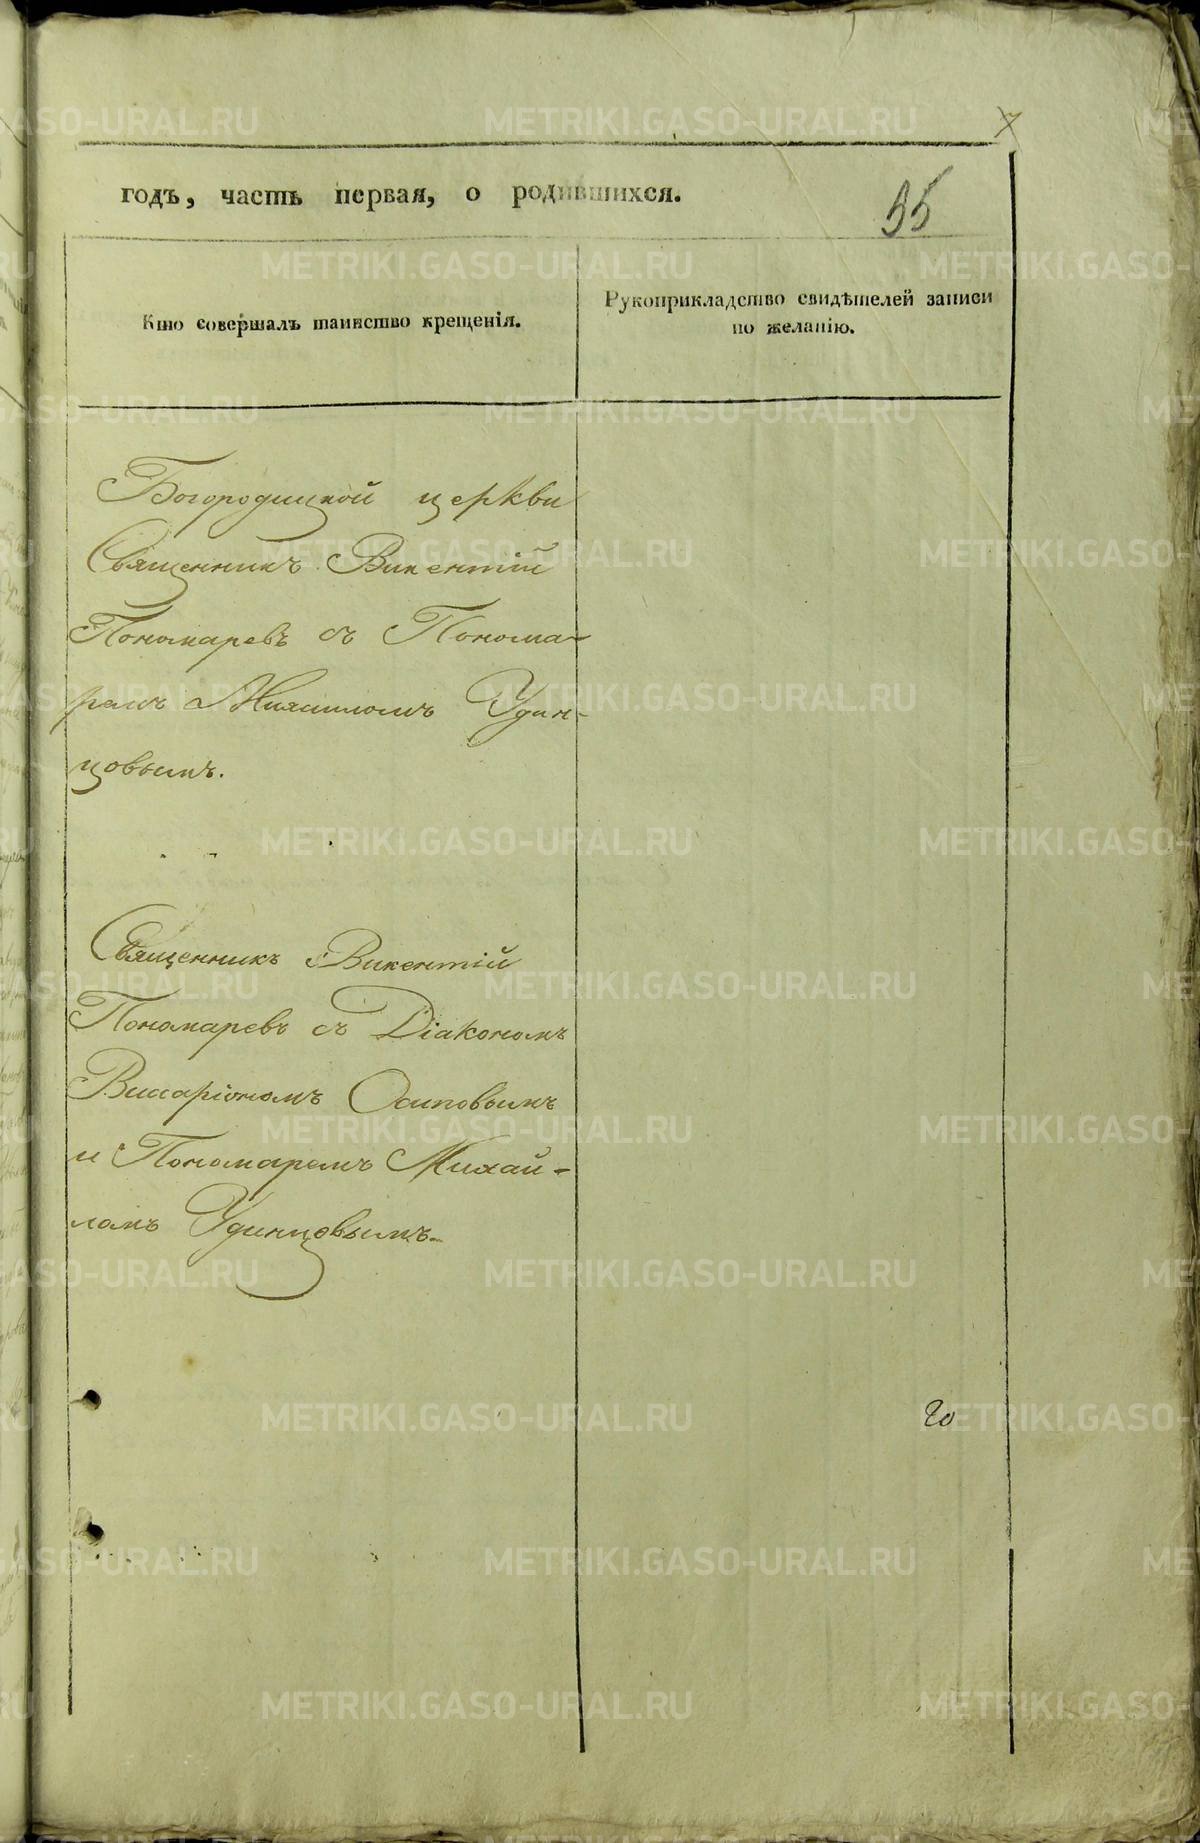 7
годъ, часть первая, о родившихся.
55
Кто совершалъ таинство крещенія.
Рукоприкладство свидѣтелей записи
по желанію.
Богородицкой церкви
Священникъ Викентій
Пономаревъ съ Понома-
ремъ Михаиломъ Удин-
цовымъ.
Священникъ Викентій
Пономаревъ съ Діакономъ
Висаріономъ Осиповымъ
и Пономаремъ Михаи-
ломъ Удинцовымъ.
20
METRIKI.GASO-URAL.RU